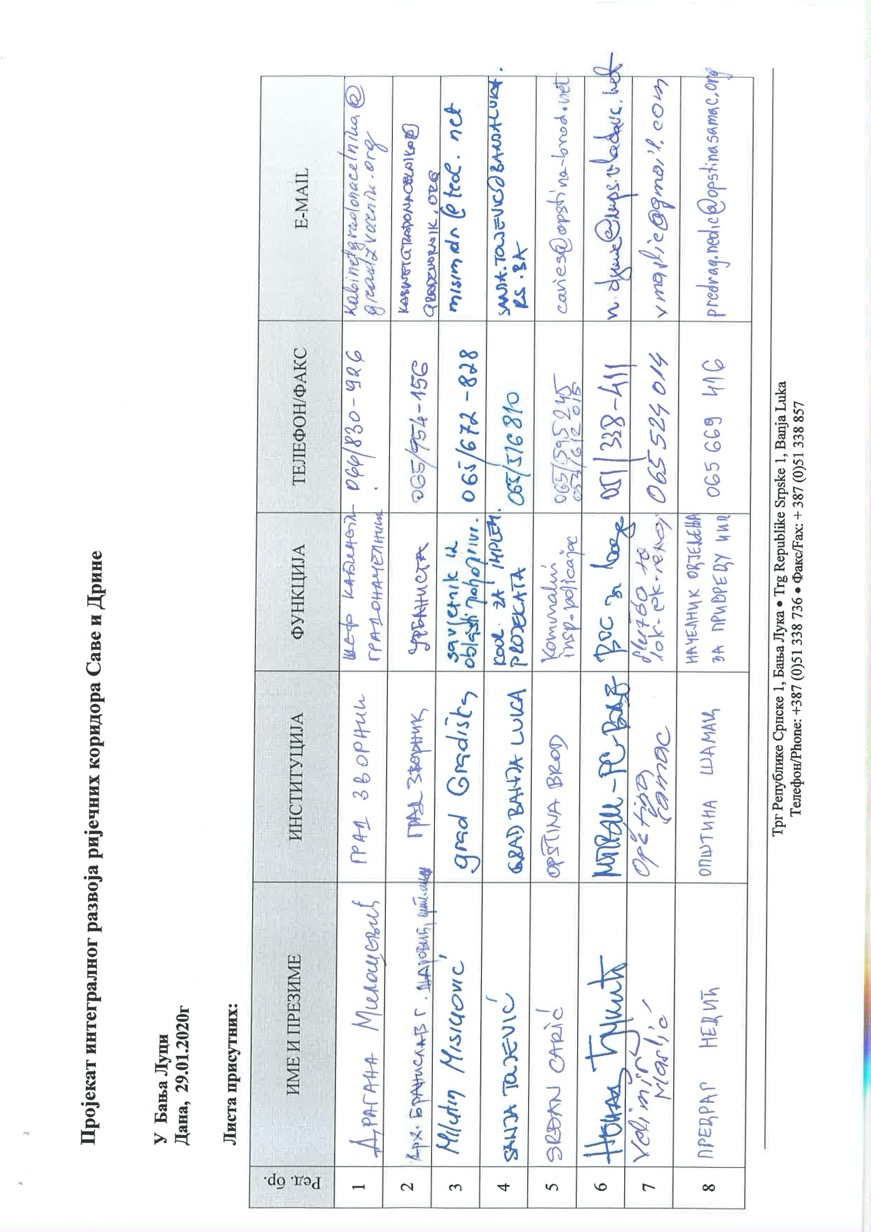 Пројекат интегралног развоја ријечних коридора Саве и Дрине
У Бања Луци
Дана, 29.01.2020г
Листа присутних:
Ред. бр. ИМЕ И ПРЕЗИМЕ ИНСТИТУЦИЈА ФУНКЦИЈА ТЕЛЕФОН/ФАКС E-MAIL
1 ДРАГАНА ГРАД ЗВОРНИК ШЕФ КАБИНЕТА ГРАДОНАЧЕЛНИКА 066/830-926 kabinetgradonacelnika@
gradzvornik.org
2 БРАНИСЛАВ Г. ГРАД ЗВОРНИК УРБАНИСТА 065/954-156 KABINETGRADONACELNIKA@
GRADZVORNIK.ORG
3 Milutin Misimović grad Gradiška savjetnik iz
oblasti poljopriv. 065/672-828 misimdn@teol.net
4 SANJA TOJEVIĆ GRAD BANJA LUKA KOOR. ZA IMPLEM.
PROJEKATA 065/516810 SANJA.TOJEVIC@BANJALUKA.
RS.BA
5 SRĐAN CARIĆ OPŠTINA BROD Komunalni
insp.-policajac 065/595245
053/612 015 caries@opstina-brod.net
6 051/338-411
7 Velimir
Maslić Opština
Šamac 065 524 014 vmaslic@gmail.com
8 ПРЕДРАГ НЕДИЋ ОПШТИНА ШАМАЦ НАЧЕЛНИК ОДЈЕЉЕЊА
ЗА ПРИВРЕДУ 065 669 416 predrag.nedic@opstinasamac.org
Трг Републике Српске 1, Бања Лука • Trg Republike Srpske 1, Banja Luka
Телефон/Phone: +387 (0)51 338 736 • Факс/Fax: + 387 (0)51 338 857